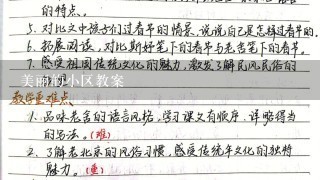 的特点。
5. 对比文中孩子们过春节的情景,说说自己是怎样过春节的.
6. 拓展阅读,对比斯妤笔下的春节与老舍笔下的春节。
7. 感受祖国传统文化的魅力,激发了解民风民俗的
美丽的小区教案
教学重难点
1. 品味老舍的语言风格,学习课文有顺序、详略得当
的写法。(难)
2. 了解老北京的风俗习惯,感受传统年文化的独特
魅力。(重)